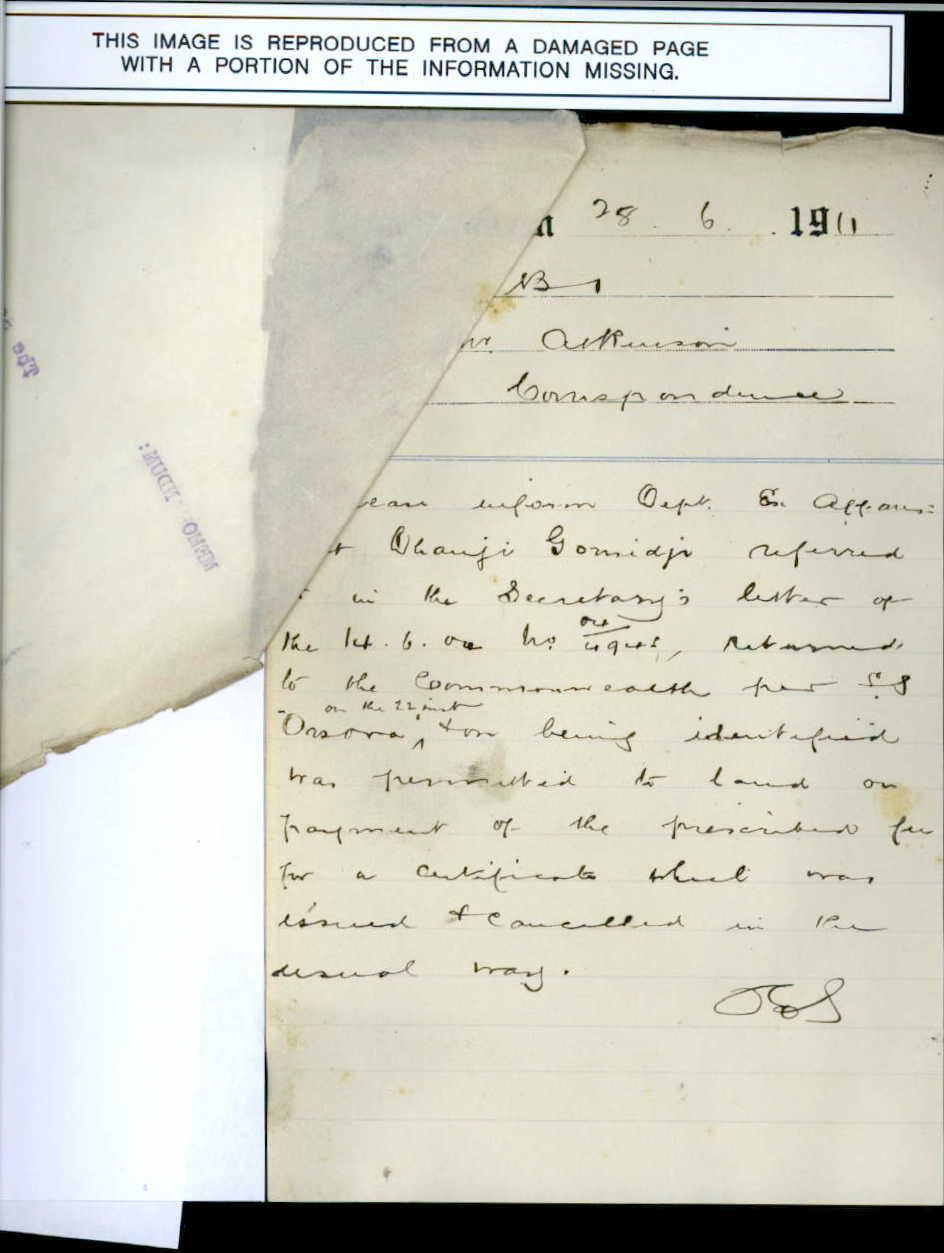 THIS IMAGE IS REPRODUCED FROM A DAMAGED PAGE
WITH A PORTION OF THE INFORMATION MISSING.
28 . 6 . 1911
Atkinson
Correspondence
inform Dept. Ex. Affairs
Dhanji Gomidji referred
in the Secretary's letter of
the 14 . 6 . on No , returned
to the Commonwealth per S.S
on the 22 inst
Orsova, & on being identified
was permitted to land on
payment of the prescribed fee
for a certificate which was
issued & cancelled in the
usual way.
MEMO. FROM:
the